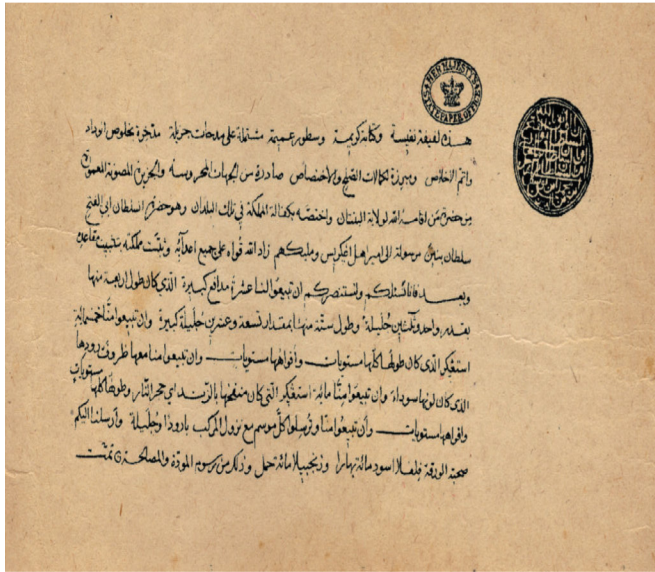 HER MAJESTY'S STATE PAPER OFFICE
هذه لفيفة نفيسة وكتابة كريمة وسطور عميمة مشتملة على مدحات جزيلة متجرة بخلوص الوداد
واتم الاخلاص ومبرزة بكمالات النصح والاختصاص صادرة من الجهات المحروسة والجزيرة المصونة المعمورة
من حضرة من اقامه الله لولاية البنتان واختصه بكفالة المملكة في تلك البلدان وهو حضرة السلطان ابي الفتح
سلطان بنتن مرسولة الى امير اهل انكريس ومليكهم زاد الله قواه على جميع اعدآئه وثبتت مملكته بتثبيت مقاعده
وبعد فانا نسئلكم ونستنصركم ان تبيعوا لنا عشرة مدافع كبيرة الذي كان طول اربعة منها
بقدر واحد وثلثين جليلة وطول ستة منها بمقدار تسعة وعشرين جليلة كبيرة وان تبيعوا منا خمسمائة
استنقكر الذي كان طوطها كلها مستويات وافواهها مستويات وان تبيعوا منا معها ظروف رودها
الذي كان لونها سوداء وان تبيعوا منا مائة استنقكر التي كان منفخها بالزند اي حجر النار وطوطها كلها مستويات
وافواهها مستويات وان تبيعوا منا وترسلوا كل موسم مع نزول المركب بارودا وجليلة وارسلنا اليكم
صحبة الورقة فلفلا اسود مائة بهارا وزنجبيلا مائة حمل وذلك من رسوم المودة والمصالحة تمت